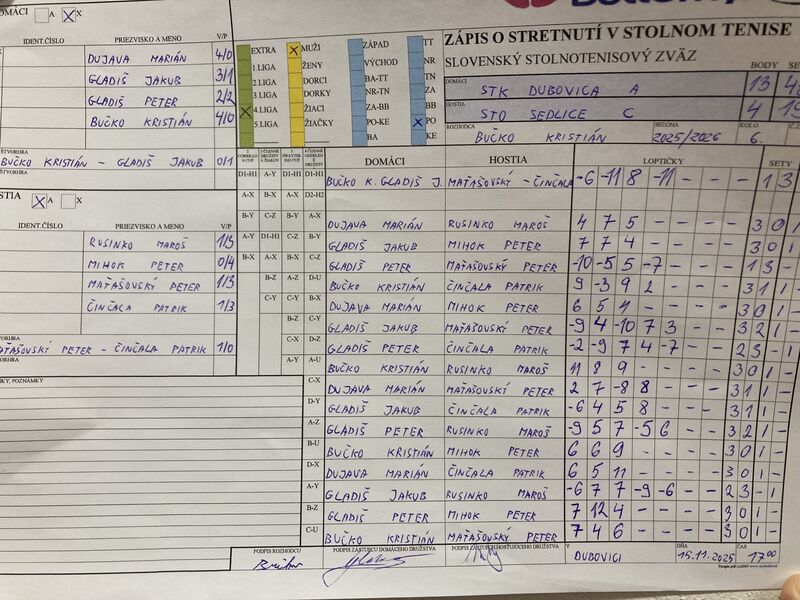 DOMÁCI A X
IDENT.ČÍSLO PRIEZVISKO A MENO V/P
DUJAVA MARIÁN 4/0
GLADIŠ JAKUB 3/1
GLADIŠ PETER 2/2
BUČKO KRISTIÁN 4/0
ŠTVORHRA
BUČKO KRISTIÁN - GLADIŠ JAKUB 0/1
ŠTVORHRA
HOSTIA A X
IDENT.ČÍSLO PRIEZVISKO A MENO V/P
RUSINKO MAROŠ 1/3
MIHOK PETER 0/4
MAŤAŠOVSKÝ PETER 1/3
ČINČALA PATRIK 1/3
ŠTVORHRA
MAŤAŠOVSKÝ PETER - ČINČALA PATRIK 1/0
ŠTVORHRA
POZNÁMKY
EXTRA
1.LIGA
2.LIGA
3.LIGA
4.LIGA
5.LIGA
MUŽI
ŽENY
DORCI
DORKY
ŽIACI
ŽIAČKY
ZÁPAD
VÝCHOD
BA-TT
NR-TN
ZA-BB
PO-KE
BA
TT
NR
TN
ZA
BB
PO
KE
ZÁPIS O STRETNUTÍ V STOLNOM TENISE
SLOVENSKÝ STOLNOTENISOVÝ ZVÄZ BODY
DOMÁCI STK DUBOVICA A 13
HOSTIA STO SEDLICE C 4
ROZHODCA BUČKO KRISTIÁN SEZONA 2025/2026 KOLO 6.
DOMÁCI HOSTIA LOPTIČKY SETY
D1-H1 A-Y D1-H1 D1-H1 BUČKO K. GLADIŠ J. MAŤAŠOVSKÝ - ČINČALA -6 -11 8 -11 - - - 1 3
A-X B-X A-X D2-H2
B-Y C-Z B-Y A-X DUJAVA MARIÁN RUSINKO MAROŠ 4 7 5 - - - - 3 0 1
A-Y D1-H1 C-Z B-Y GLADIŠ JAKUB MIHOK PETER 7 7 4 - - - - 3 0 1 -
B-X A-X B-X C-Z GLADIŠ PETER MAŤAŠOVSKÝ PETER -10 -5 5 -7 - - - 1 3 -
B-Z A-Z D-U BUČKO KRISTIÁN ČINČALA PATRIK 9 -3 9 2 - - - 3 1 1 -
C-Y C-Y B-X DUJAVA MARIÁN MIHOK PETER 6 5 4 - - - - 3 0 1 -
B-Z C-Y GLADIŠ JAKUB MAŤAŠOVSKÝ PETER -9 4 -10 7 3 - - 3 2 1 -
C-X D-Z GLADIŠ PETER ČINČALA PATRIK -2 -9 7 4 -7 - - 2 3 - 1
A-Y A-U BUČKO KRISTIÁN RUSINKO MAROŠ 11 8 9 - - - - 3 0 1 -
C-X DUJAVA MARIÁN MAŤAŠOVSKÝ PETER 2 7 -8 8 - - - 3 1 1 -
D-Y GLADIŠ JAKUB ČINČALA PATRIK -6 4 5 8 - - - 3 1 1 -
A-Z GLADIŠ PETER RUSINKO MAROŠ -9 5 7 -5 6 - - 3 2 1 -
B-U BUČKO KRISTIÁN MIHOK PETER 6 6 9 - - - - 3 0 1 -
D-X DUJAVA MARIÁN ČINČALA PATRIK 6 5 11 - - - - 3 0 1 -
A-Y GLADIŠ JAKUB RUSINKO MAROŠ -6 7 7 -9 -6 - - 2 3 - 1
B-Z GLADIŠ PETER MIHOK PETER 7 12 4 - - - - 3 0 1 -
C-U BUČKO KRISTIÁN MAŤAŠOVSKÝ PETER 7 4 6 - - - - 3 0 1 -
PODPIS ROZHODCU PODPIS ZÁSTUPCU DOMÁCEHO DRUŽSTVA PODPIS ZÁSTUPCU HOSŤUJÚCEHO DRUŽSTVA V DUBOVICI DŇA 15.11.2025 ČAS 17:00